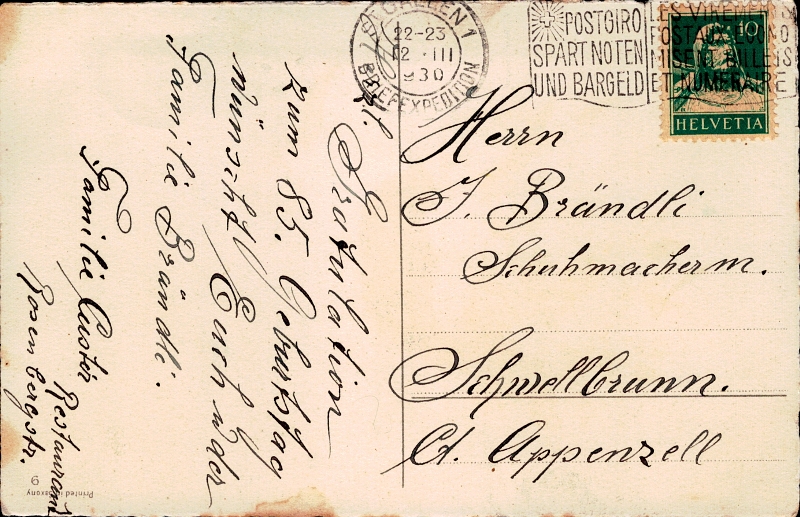 ST. GALLEN 1
22-23
12. III
1930
BRIEFEXPEDITION
POSTGIRO
SPART NOTEN
UND BARGELD
LES VIREMENTS
POSTAUX ECONO
MISENT BILLETS
ET NUMERAIRE
10
HELVETIA
Herrn
J. Brändli
Schuhmacherm.
Schwellbrunn.
Ct. Appenzell
Hl. Gratulation
zum 85. Geburtstag
wünscht Euch
Familie Brändli.
Familie Custer
Restaurant
Rosenbergstr.
Printed Saxony
9